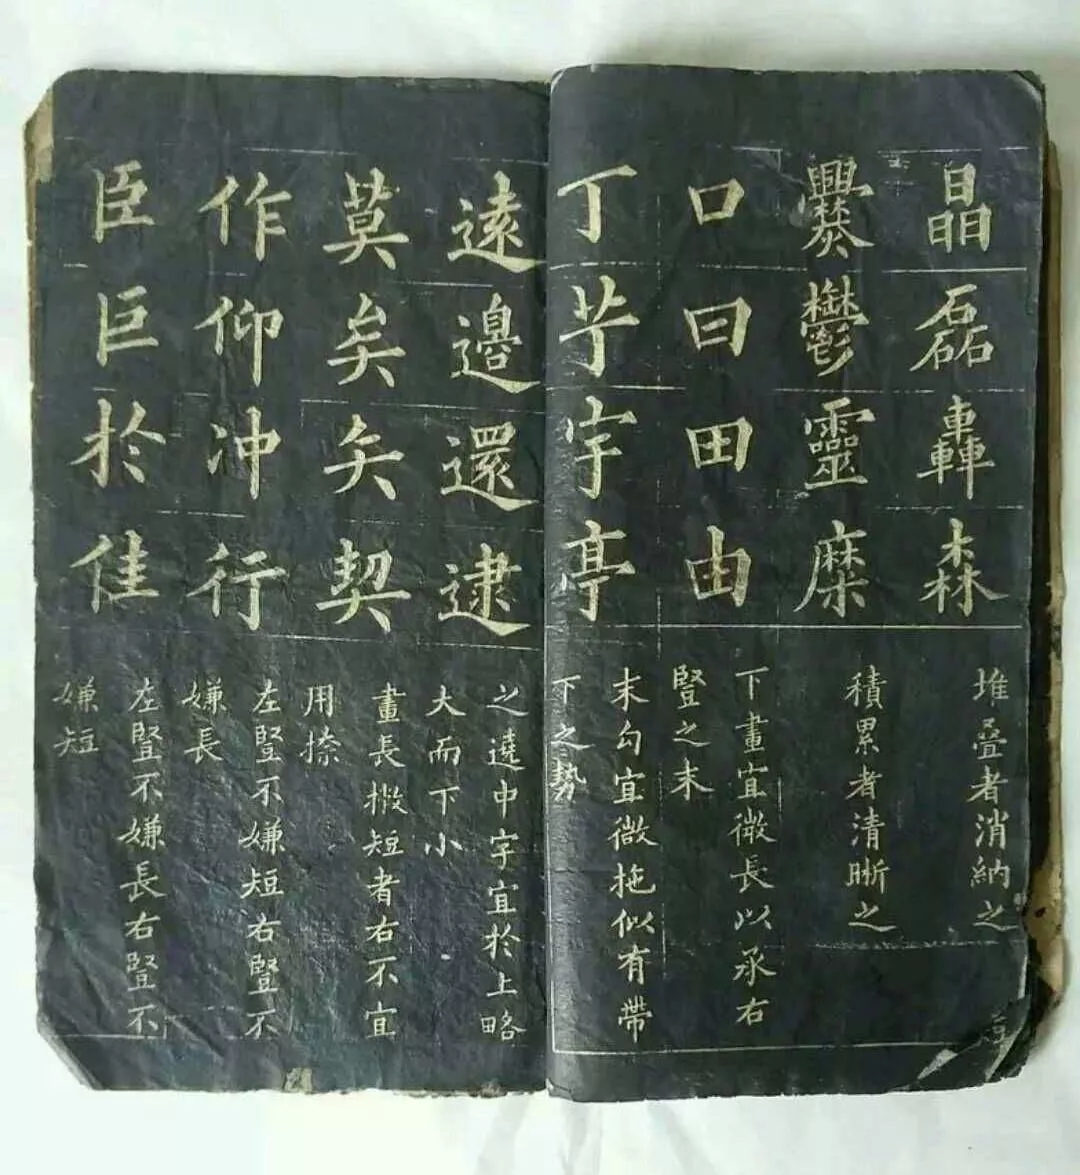 晶磊轟森
堆叠者消納之
爨鬱靈糜
積累者清晰之
口曰田由
下畫宜微長以承右
豎之末
丁芋宇亭
末勾宜微拖似有帶
下之勢
遠邊還逮
之遶中字宜於上略
大而下小
莫矣矢契
畫長撇短者右不宜
用捺
作仰冲行
左豎不嫌短右豎不
嫌長
臣巨於佳
左豎不嫌長右豎不
嫌短